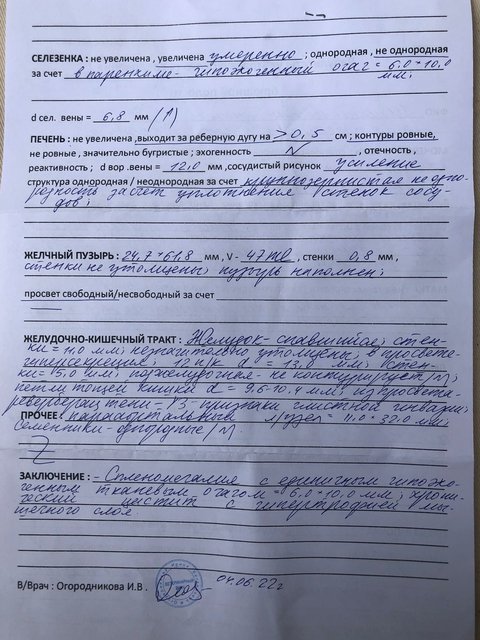 СЕЛЕЗЕНКА : не увеличена , увеличена умеренно ; однородная , не однородная
за счет в паренхиме - гипоэхогенный очаг = 6.0*10,0
мм;
d сел. вены = 6,8 мм /↑/
ПЕЧЕНЬ : не увеличена ,выходит за реберную дугу на > 0,5 см ; контуры ровные,
не ровные , значительно бугристые ; эхогенность N , отечность ,
реактивность ; d вор .вены = 12,0 мм ,сосудистый рисунок усиление
структура однородная / неоднородная за счет крупнозернистая неодно-
родность за счет уплотнения стенок сосу-
дов;
ЖЕЛЧНЫЙ ПУЗЫРЬ : 24,7*61,8 мм , V - 47 ml , стенки 0,8 мм ,
стенки не утолщены; пузырь наполнен;
просвет свободный/несвободный за счет
ЖЕЛУДОЧНО-КИШЕЧНЫЙ ТРАКТ : Желудок - спавшийся; стен-
ки = 11,0 мм; незначительно утолщены; в просвете-
гиперсекреция; 12 п/к d = 13,0 мм; стен-
ки = 5,0 мм; поджелудочная - в контурирует /N/;
петли тощей кишки d = 9.6-10.4 мм; из просвета
реверберац. тени - УЗ-признаки глистной инвазии;
ПРОЧЕЕ = 11,0*32,0 мм;
Семенники - однородные /N/.
Z
ЗАКЛЮЧЕНИЕ : - Спленомегалия с единичным гипоэхо-
генным тканевым очагом = 6.0*10,0 мм; хрони-
ческий цистит с гипертрофией мы-
шечного слоя.
В/Врач : Огородникова И.В . 04.06.22г